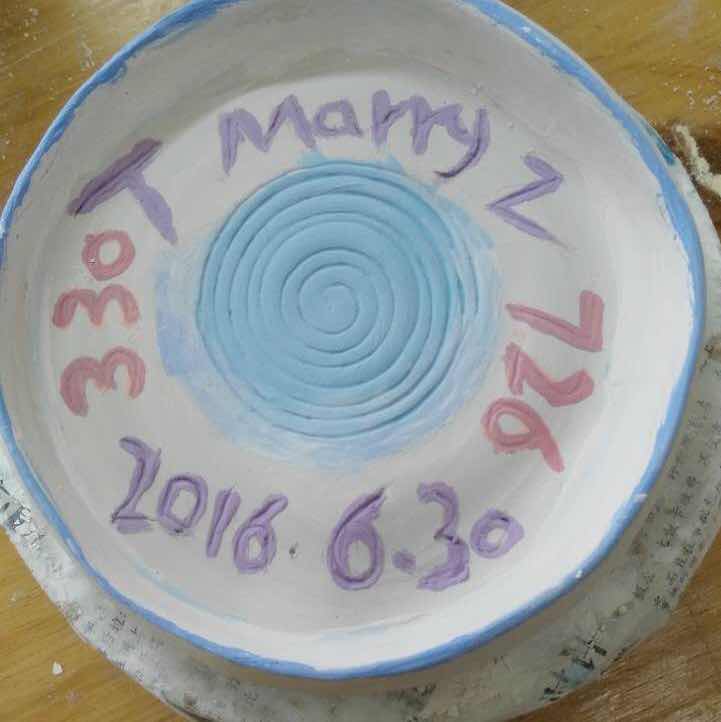 T Marry Z
330
726
2016.6.30